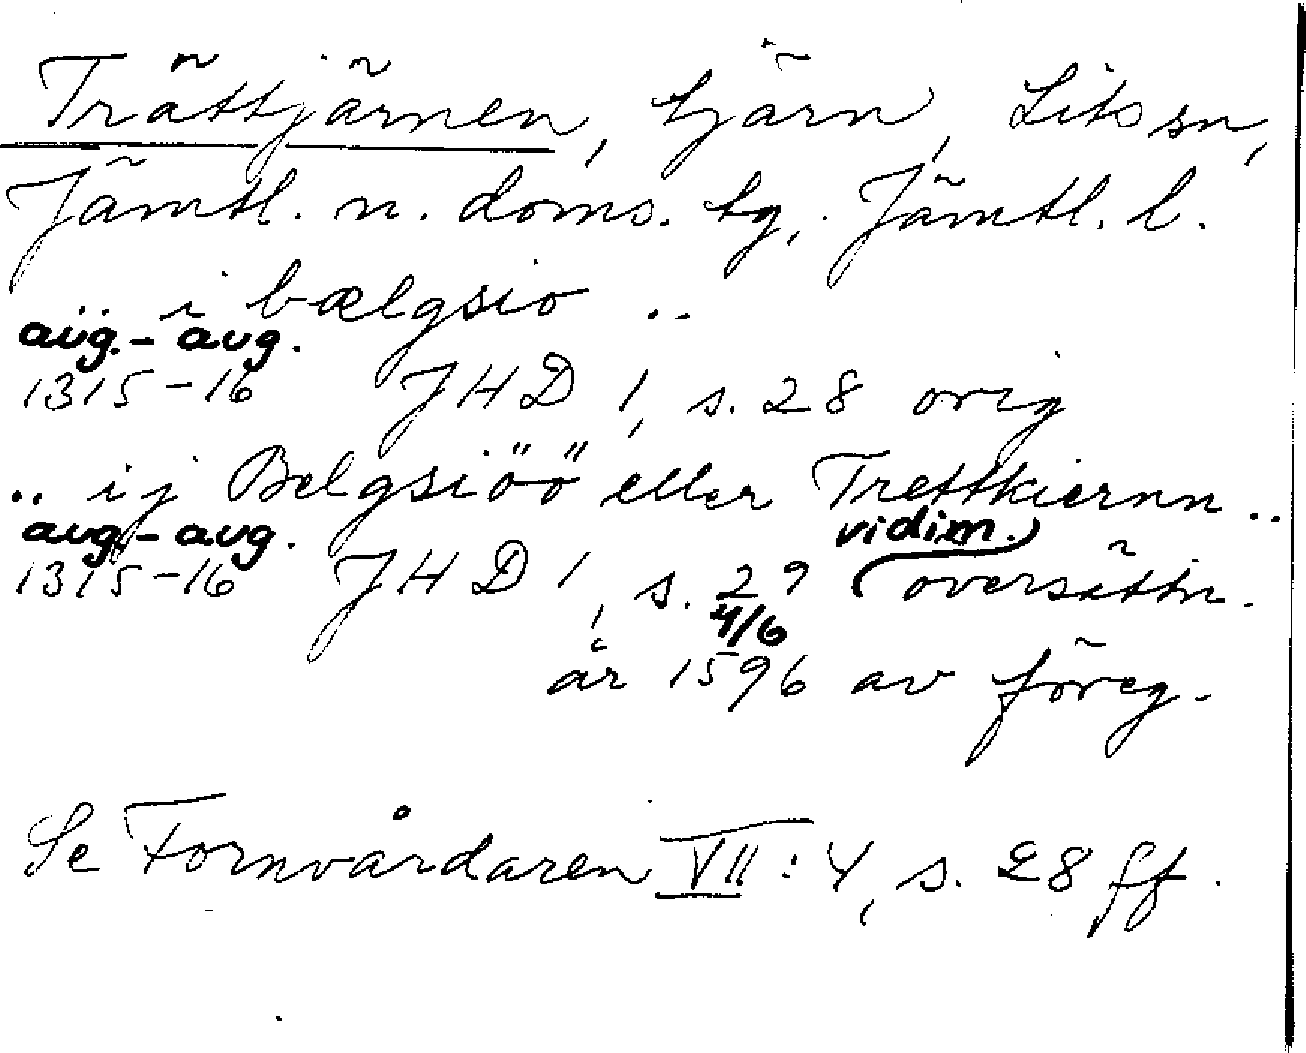 Trättjärnen, tjärn, Lits sn,
Jämtl. n. doms. tg, Jämtl. l.
.. i bælgsio ..
aug.- aug.
1315-16 JHD 1, s. 28 orig
.. ij Belgsiöö eller Trettkiernn ..
aug.- aug. vidim.)
1315-16 JHD 1, s. 29 (översättn.
4/6
år 1596 av föreg.
Se Fornvårdaren VII:4, s. 28 ff.